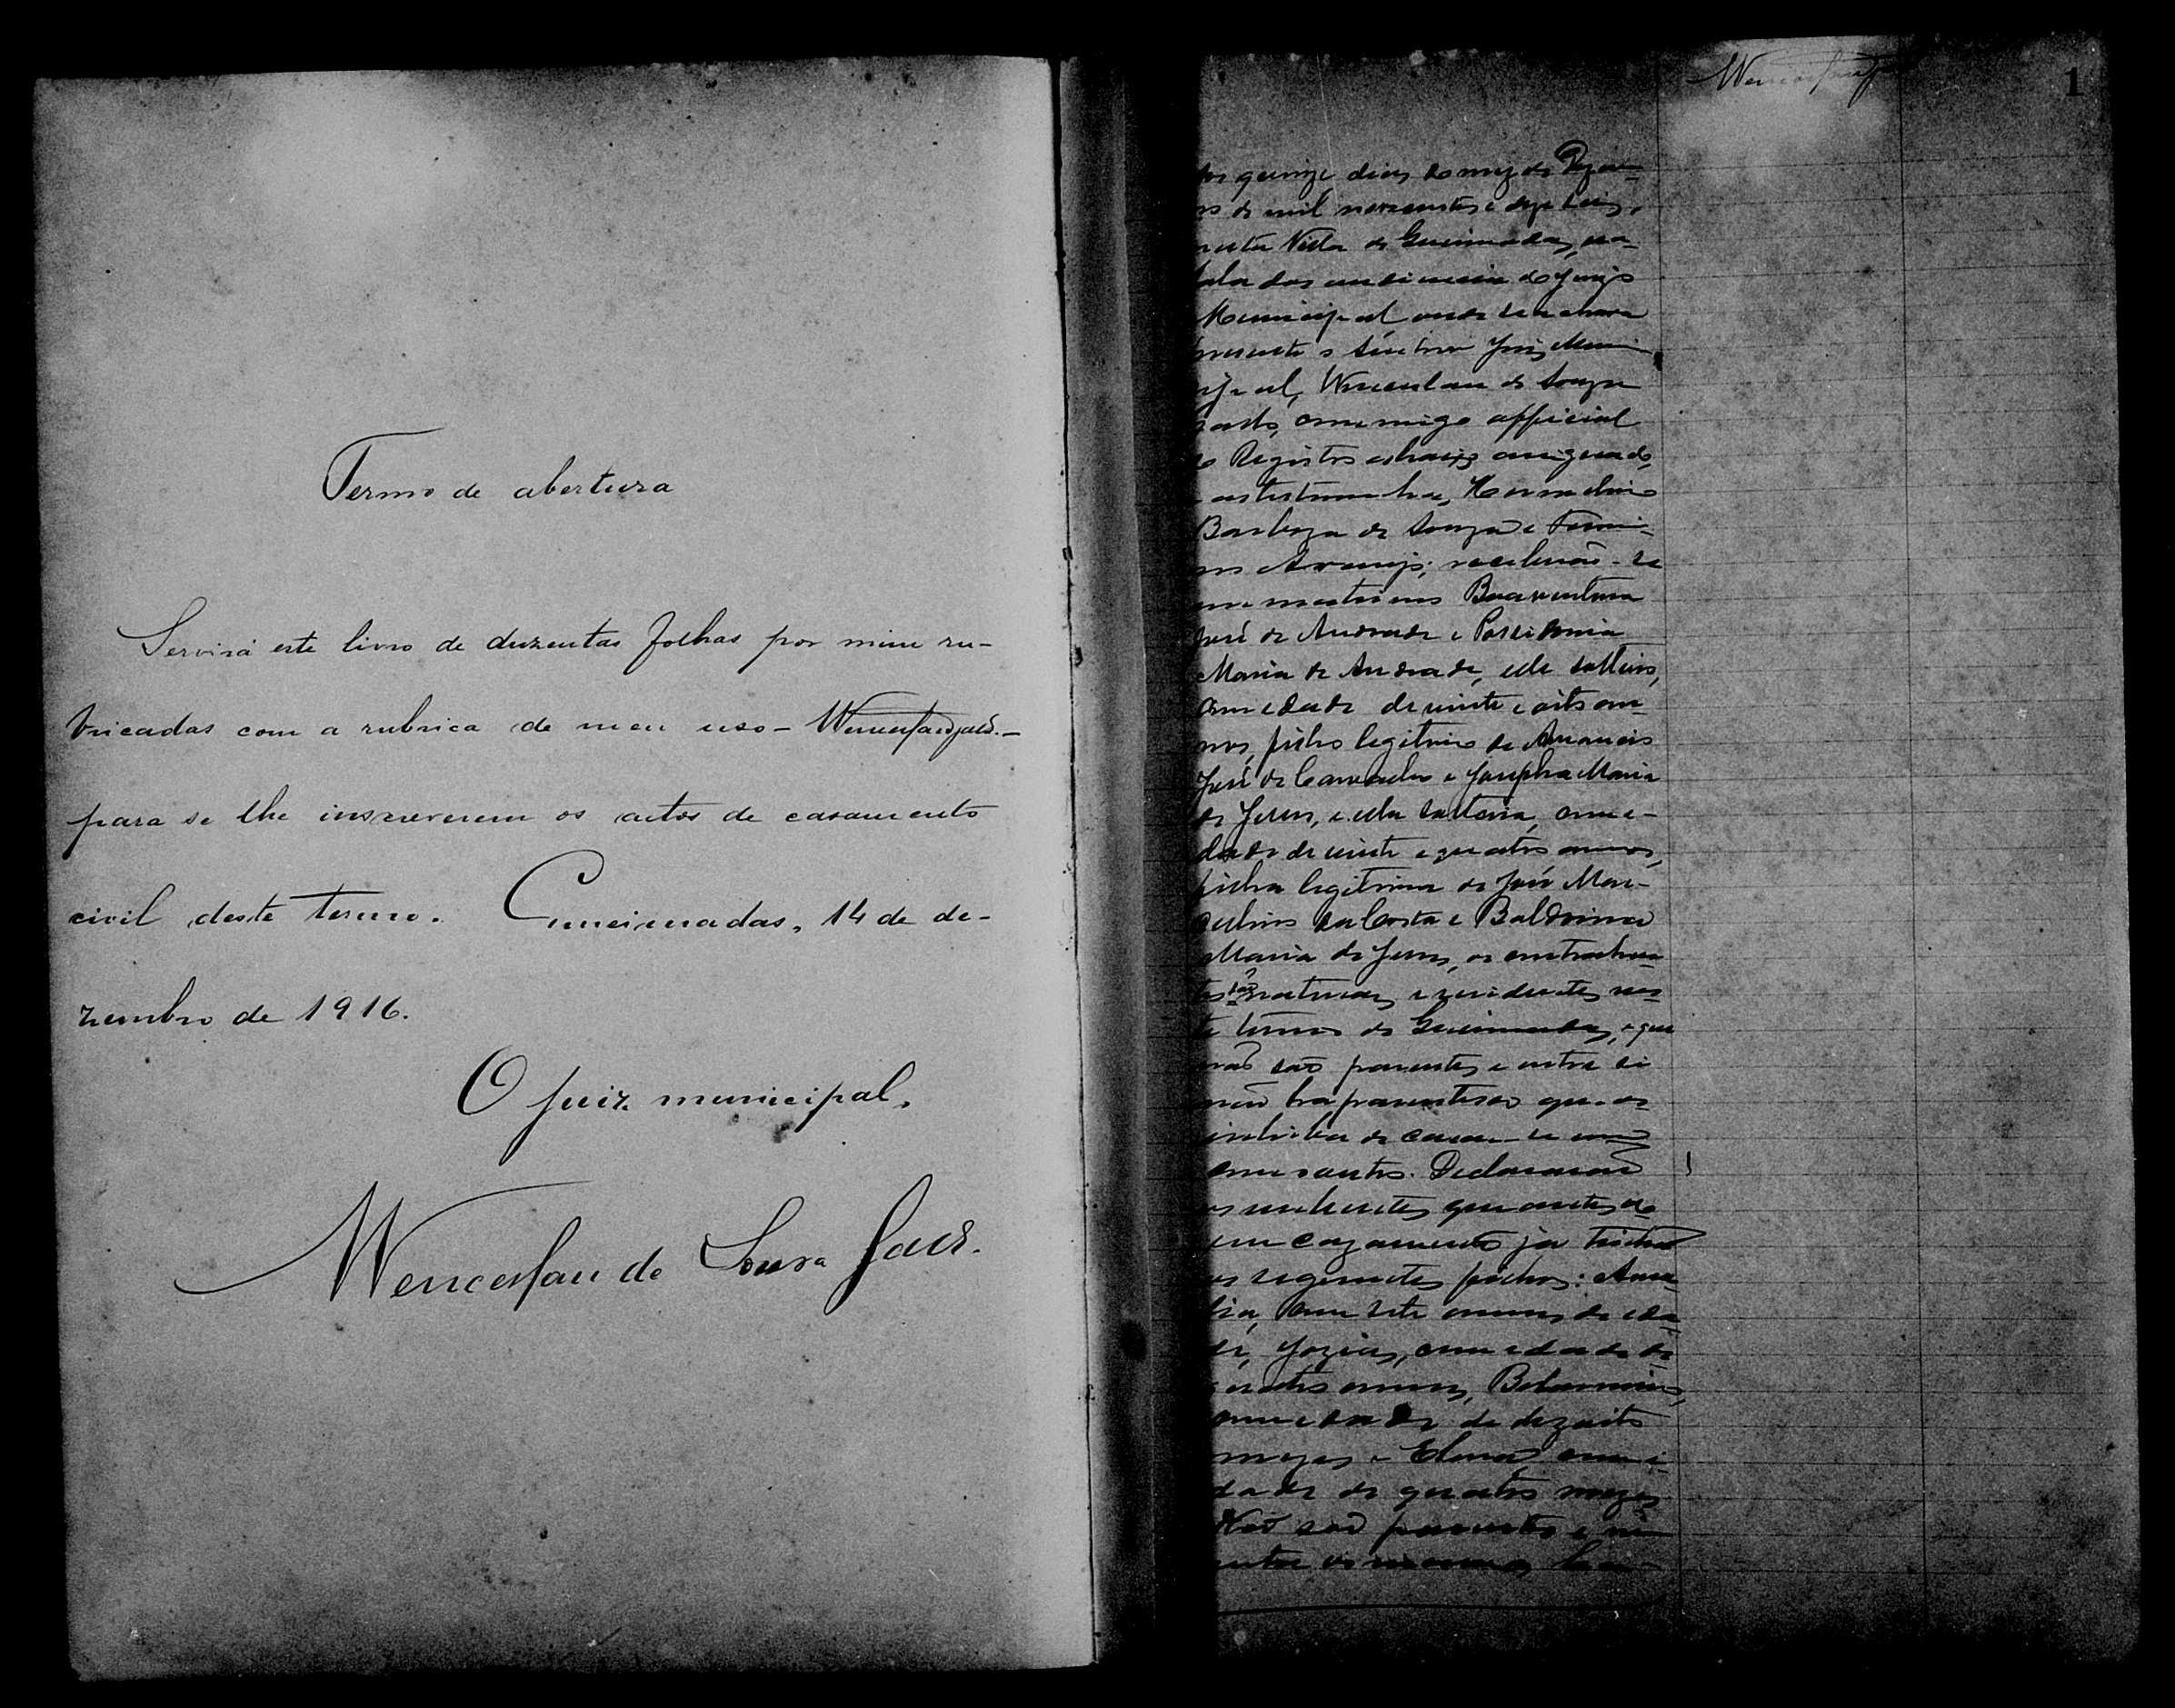 Termo de abertura
Servirá este livro de duzentas folhas por mim ru-
bricadas com a rubrica de meu uso -
para se lhe inscreverem os actos de casamento
civil deste termo. Queimadas, 14 de de-
zembro de 1916.
O juiz municipal,
Wenceslau de Souza
1
quinze dias do mez de Dezem-
de mil novecentos e dezeseis,
nesta Villa de Queimadas, na
sala das audiencias do Juizo
Municipal onde se achava
presente o Juiz Muni-
cipal, Wenceslau de Souza
commigo official
do Registro abaixo assignado,
as testemunhas,
Barboza de Souza e Firmi-
no Araujo; receberão-se
em matrimonio Boaventura
José de Andrade e Possidonia
Maria de Andrade, elle solteiro,
com edade de vinte e oito an-
nos, filho legitimo de
José de Carvalho e Josepha Maria
de Jesus, e ella solteira, com e-
dade de vinte e quatro annos,
filha legitima de José Mar-
culino da Costa e Baldoina
Maria de Jesus, os contrahen-
tes são naturaes e residentes nes-
te termo de Queimadas, e que
não são parentes e entre si
não ha parentesco que os
inhiba de casar-se um
com o outro. Declararão
os nubentes que antes de
seu cazamento já tinhão
os seguintes filhos:
com sete annos de eda-
de, Jozias, com edade de
quatro annos,
com edade de dezoito
mezes e com e-
dade de quatro mezes
Não são parentes e nem
entre os mesmos ha